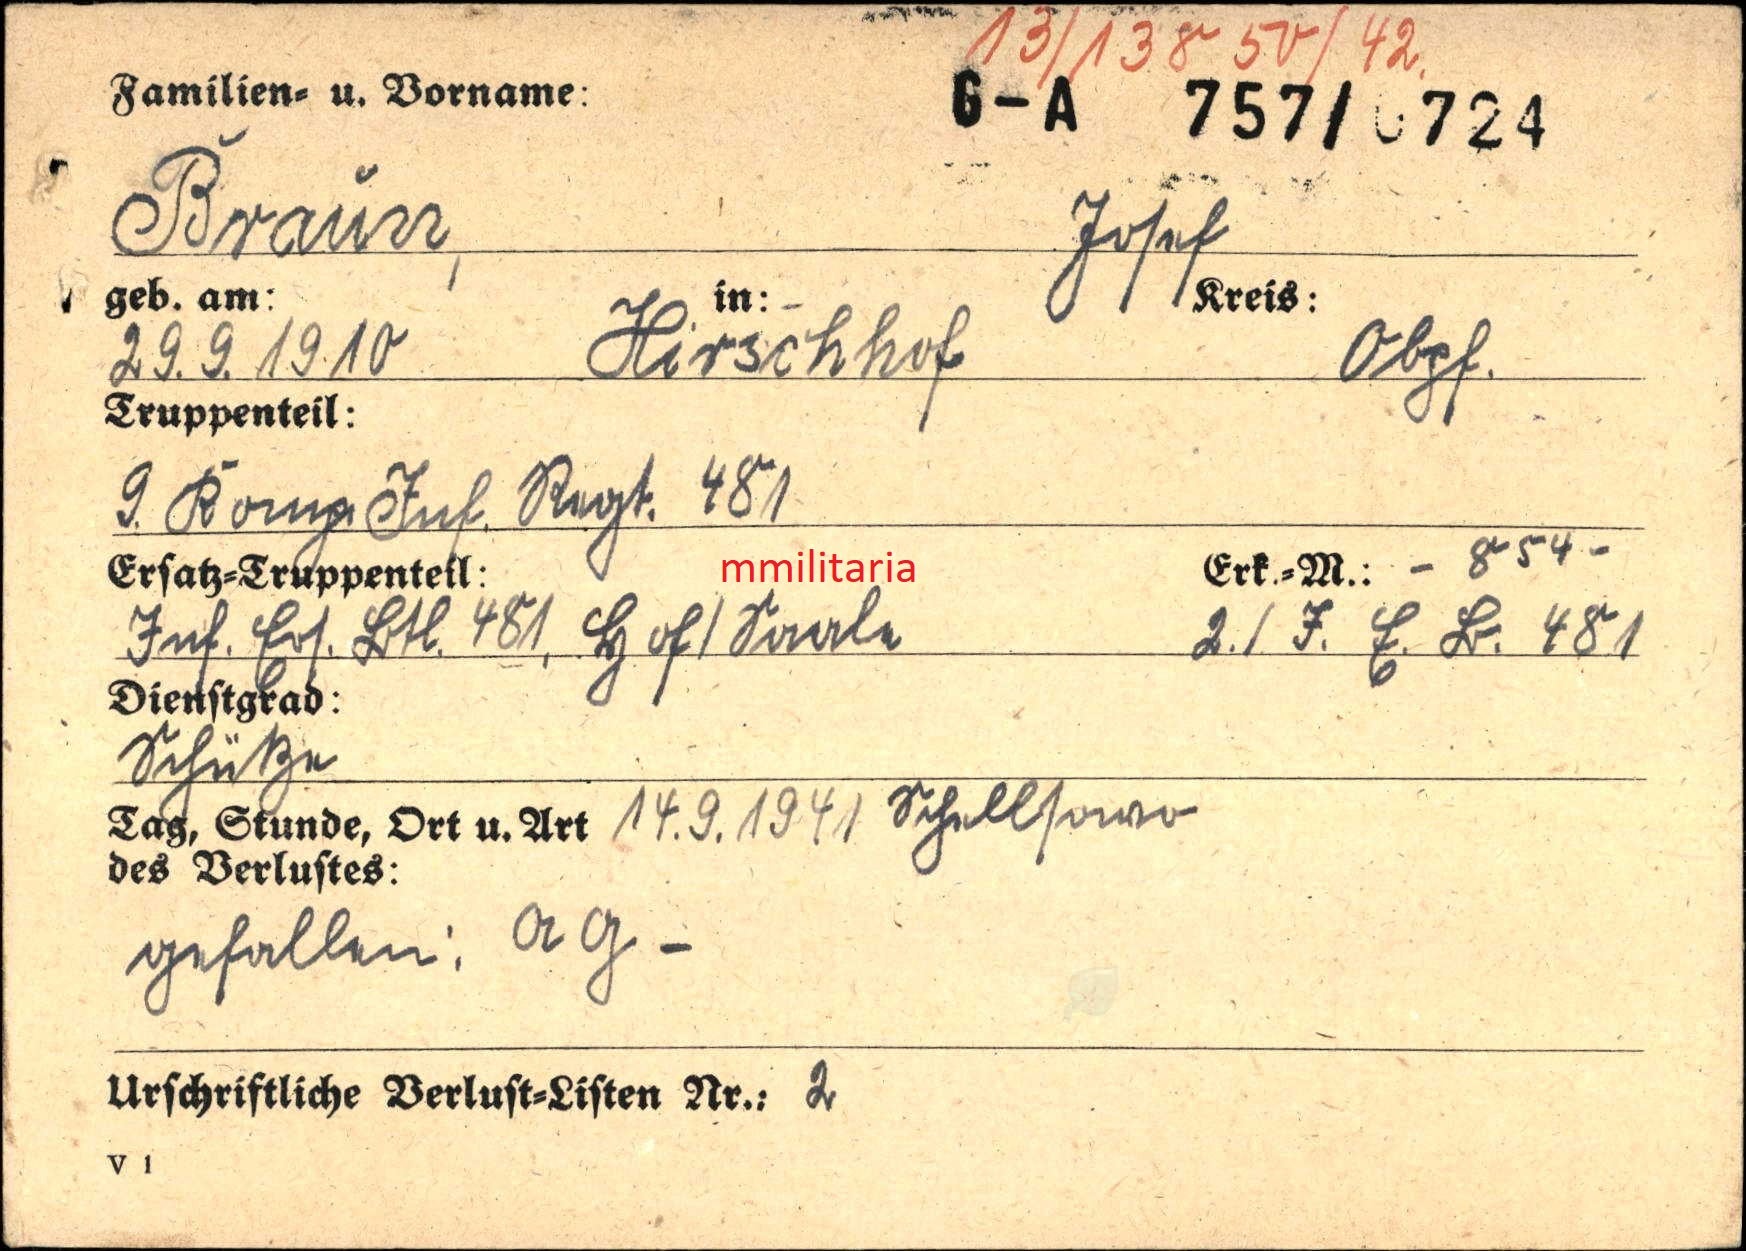 13/13850/42.
Familien- u. Vorname:
G-A 757/0724
Braun, Josef
geb. am: in: - Kreis:
29.9.1910 Hirschhof Obpf.
Truppenteil:
9. Komp. Inf. Regt. 481
Ersatz-Truppenteil: mmilitaria Erk.-M.: - 854 -
Inf. Ers. Btl. 481, Hof/Saale 2./ J. E. B. 481
Dienstgrad:
Schütze
Tag, Stunde, Ort u. Art 14.9.1941 Schellsowo
des Verlustes:
gefallen: AG -
Urschriftliche Verlust-Listen Nr.: 2
V 1